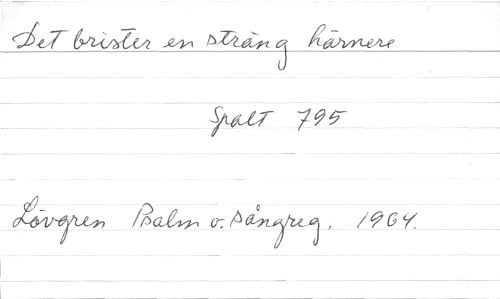 Det brister en sträng härnere
Spalt 795
Lövgren Psalm o. sångreg. 1964.